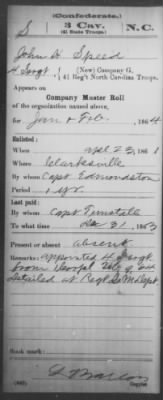 (Confederate.)
S 3 Cav. N.C.
(41 State Troops.)
John H Speed
4 Sergt, (New) Company G,
41 Reg't North Carolina Troops.
Appears on
Company Muster Roll
of the organization named above,
for Jan & Feb, 1864
Enlisted:
When Apl 23, 1861
Where Clarksville
By whom Capt Edmondston
Period 1 yr.
Last paid:
By whom Capt Tunstall
To what time Dec 31, 1863
Present or absent absent
Remarks: appointed 4 Sergt
from Corpl Feby
detailed at Regt
(642) Copyist.